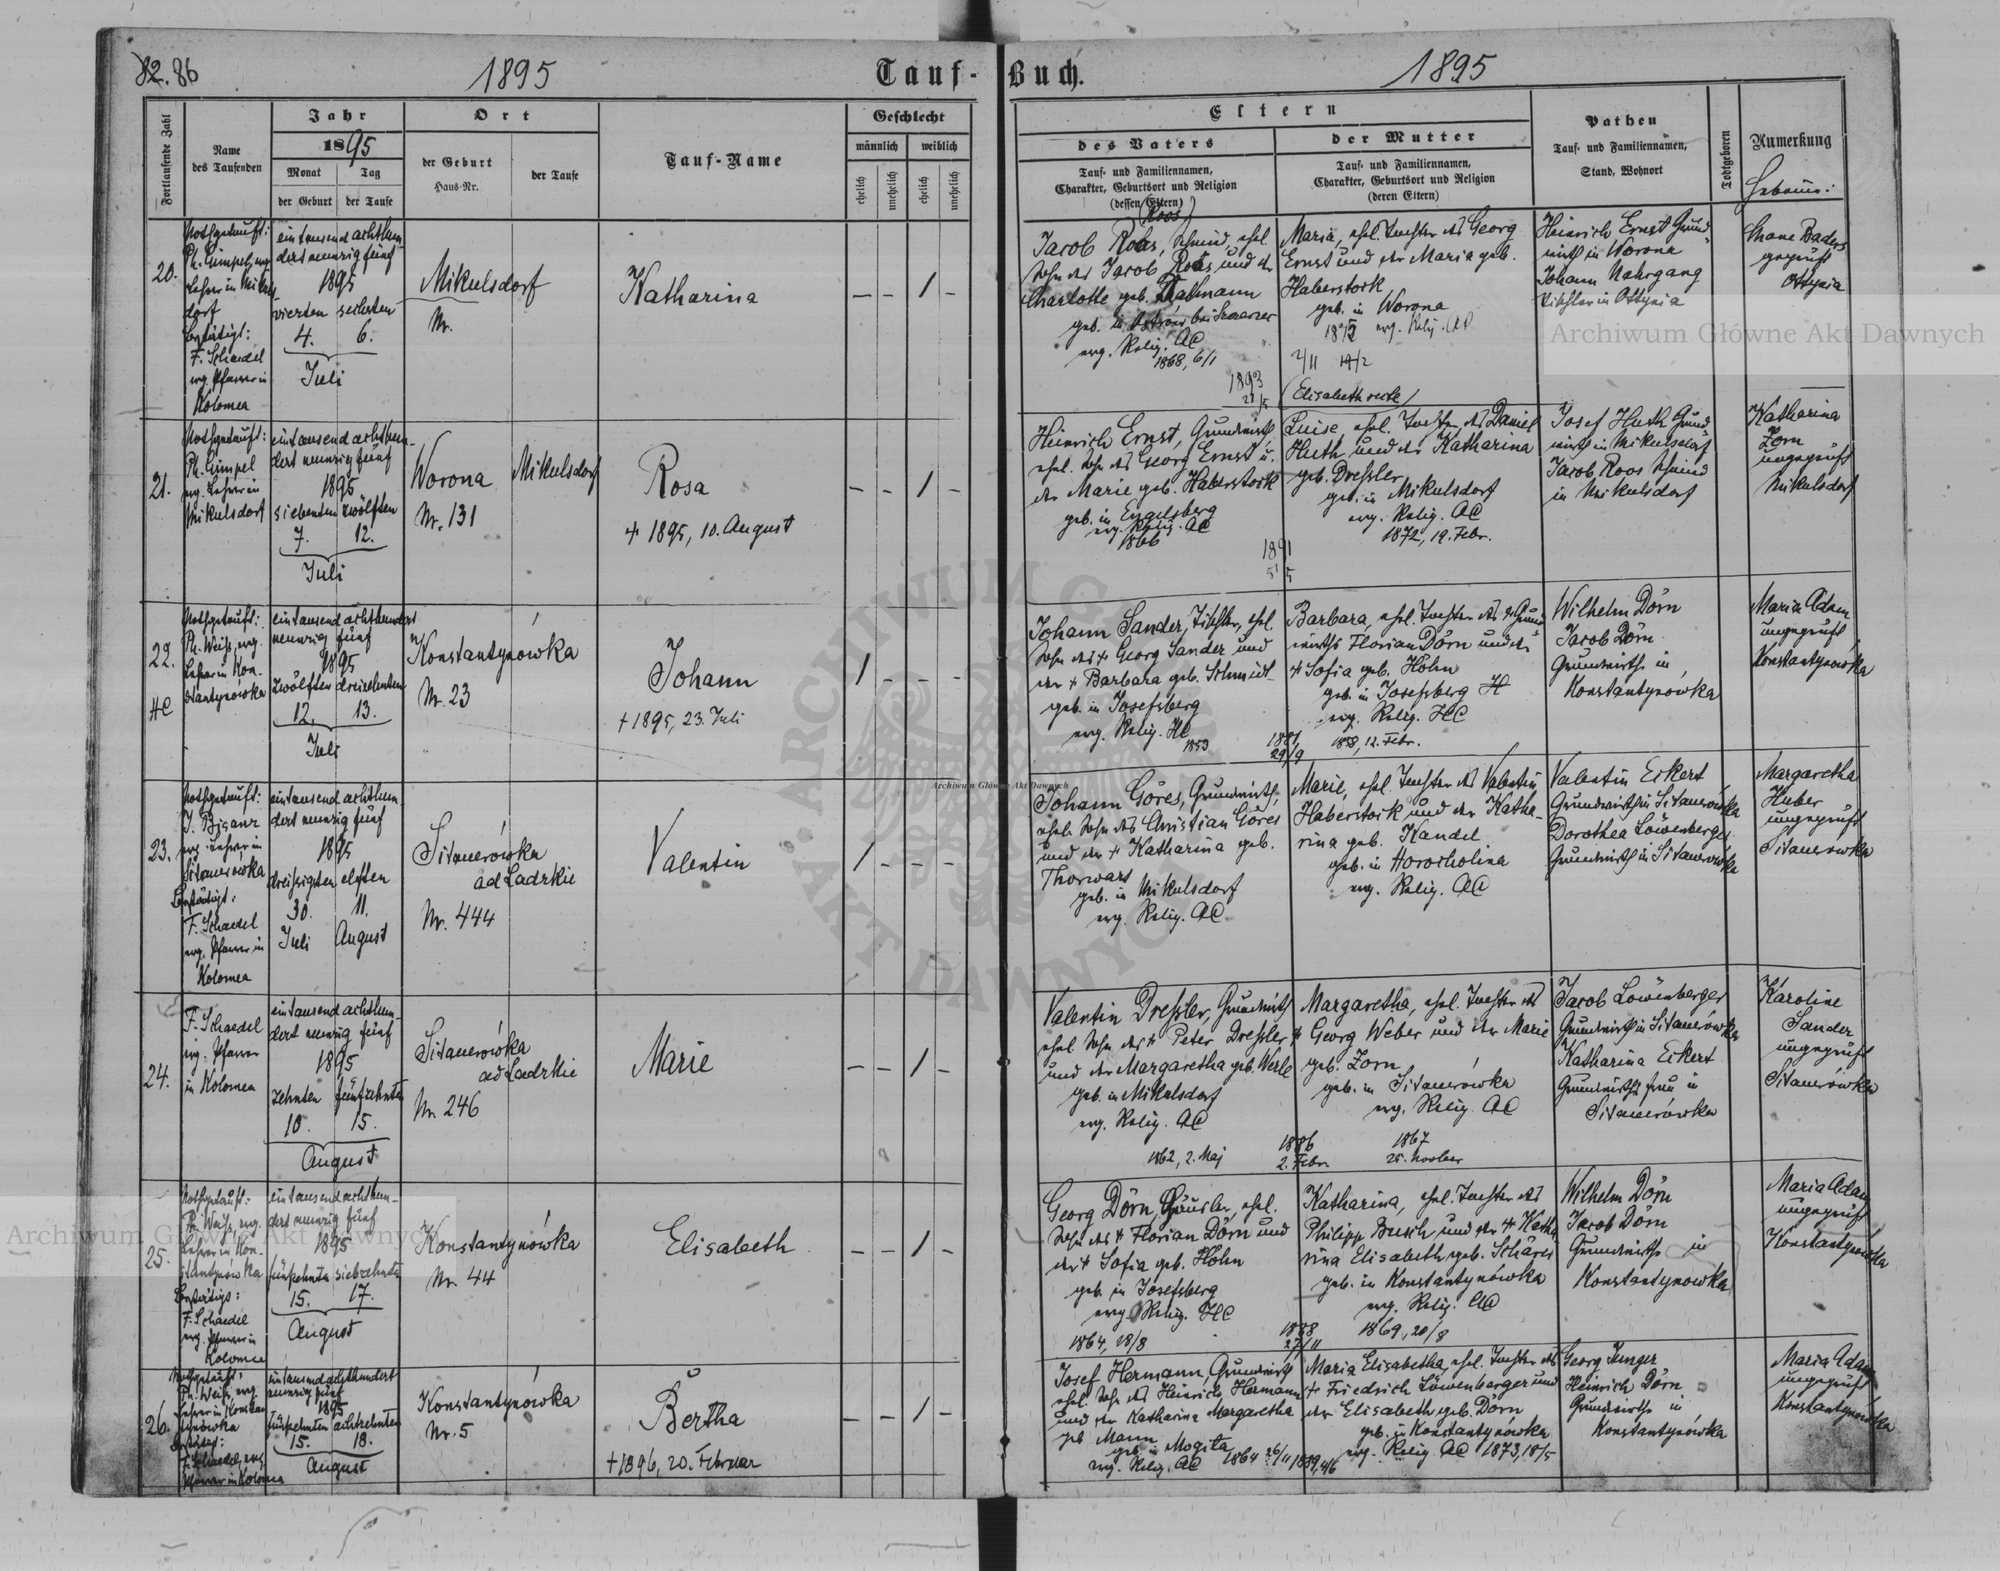 82. 86
1895
Tauf-
Buch.
1895
Fortlaufende Zahl
Name
des Taufenden
Jahr
1895
Monat
Tag
der Geburt
der Taufe
Ort
der Geburt
Haus-Nr.
der Taufe
Tauf-Name
Geschlecht
männlich
weiblich
ehelich
unehelich
ehelich
unehelich
Eltern
des Vaters
Tauf- und Familiennamen,
Charakter, Geburtsort und Religion
(dessen Eltern)
der Mutter
Tauf- und Familiennamen,
Charakter, Geburtsort und Religion
(deren Eltern)
Pathen
Tauf- und Familiennamen,
Stand, Wohnort
Todtgeboren
Anmerkung
20.
Nothgetauft:
Ph. Gimpel, evg.
Lehrer in Mikuls
dorf
Bestätigt:
F. Schaedel
evg. Pfarrer in
Kolomea
ein tausend achthun
dert neunzig fünf
1895
vierten sechsten
4. 6.
Juli
Mikulsdorf
Nr.
Katharina
— — / —
(Roos)
Jacob Roos, Schmid, ehel.
Sohn des Jacob Roos und der
Charlotte geb.
evg. Relig. AC
1868, 6/1
1893
Maria, ehel. Tochter des Georg
Ernst und der Maria geb.
Haberstock
geb. in Worona
evg. Relig. AC
Heinrich Ernst Grund-
wirth in Worona
Johann Nahrgang
Tischler in Ottynia
geprüft
Ottynia
21.
Nothgetauft:
Ph. Gimpel
evg. Lehrer in
Mikulsdorf
ein tausend achthun-
dert neunzig fünf
1895
siebenten zwölften
7. 12.
Juli
Worona Mikulsdorf
Nr. 131
Rosa
+ 1895, 10. August
— — / —
Heinrich Ernst, Grundwirth
ehel. Sohn des Georg Ernst u.
der Marie geb. Haberstock
geb. in Engelsberg
evg. Relig. AC
1866
1891
(Elisabeth recte)
Luise, ehel. Tochter des Daniel
Huth und der Katharina
geb. Dressler
geb. in Mikulsdorf
evg. Relig. AC
1872, 19. Febr.
Josef Huth Grund
wirth in Mikulsdorf
Jacob Roos Schmid
in Mikulsdorf
Katharina
Zorn
ungeprüft
Mikulsdorf
22.
HC
Nothgetauft:
Ph. Weiss, evg.
Lehrer in Kon-
stantynówka
ein tausend achthundert
neunzig fünf
1895
zwölften dreizehnten
12. 13.
Juli
Konstantynówka
Nr. 23
Johann
+ 1895, 23. Juli
/ — — —
Johann Sander, Tischler, ehel.
Sohn des + Georg Sander und
der + Barbara geb. Schmidt
geb. in Josefsberg
evg. Relig. HC
1853
1881
29/9
Barbara, ehel. Tochter des Grund
wirths Florian Dörn und der
+ Sofia geb. Höhn
geb. in Josefsberg
evg. Relig. HC
1858, 12. Febr.
Wilhelm Dörn
Jacob Dörn
Grundwirthe in
Konstantynówka
Maria Adam
ungeprüft
Konstantynówka
23.
Nothgetauft:
J. Bisanz
evg. Lehrer in
Sitauerówka
Bestätigt:
F. Schaedel
evg. Pfarrer in
Kolomea
ein tausend achthun-
dert neunzig fünf
1895
dreissigsten elften
30. 11.
Juli August
Sitauerówka
ad Ladzkie
Nr. 444
Valentin
/ — — —
Johann Göres, Grundwirth,
ehel. Sohn des Christian Göres
und der + Katharina geb.
Thorwars
geb. in Mikulsdorf
evg. Relig. AC
Marie, ehel. Tochter des Valentin
Haberstock und der Katha-
rina geb. Kandel
geb. in Horocholina
evg. Relig. AC
Valentin Eckert
Grundwirth in Sitauerówka
Dorothea Löwenberger
Grundwirth in Sitauerówka
Margaretha
Huber
ungeprüft
Sitauerówka
24.
F. Schaedel
evg. Pfarrer
in Kolomea
ein tausend achthun-
dert neunzig fünf
1895
zehnten fünfzehnten
10. 15.
August
Sitauerówka
ad Ladzkie
Nr. 246
Marie
— — / —
Valentin Dressler, Grundwirth
ehel. Sohn des + Peter Dressler
und der Margaretha geb. Werle
geb. in Mikulsdorf
evg. Relig. AC
1862, 2. Maj
1886
2. Febr.
Margaretha, ehel. Tochter des
+ Georg Weber und der Marie
geb. Zorn
geb. in Sitauerówka
evg. Relig. AC
1867
Jacob Löwenberger
Grundwirth in Sitauerówka
Katharina Eckert
Grundwirths frau in
Sitauerówka
Karoline
Sander
ungeprüft
Sitauerówka
25.
Nothgetauft:
Ph. Weiss, evg.
Lehrer in Kon-
stantynówka
Bestätigt:
F. Schaedel
evg. Pfarrer in
Kolomea
ein tausend achthun-
dert neunzig fünf
1895
fünfzehnten siebzehnten
15. 17.
August
Konstantynówka
Nr. 44
Elisabeth
— — / —
Georg Dörn, Häusler, ehel.
Sohn des + Florian Dörn und
der + Sofia geb. Höhn
geb. in Josefsberg
evg. Relig. HC
1864, 18/8
1888
27/11
Katharina, ehel. Tochter des
Philipp Busch und der + Katha
rina Elisabeth geb. Schärer
geb. in Konstantynówka
evg. Relig. AC
1869, 20/8
Wilhelm Dörn
Jacob Dörn
Grundwirthe in
Konstantynówka
Maria Adam
ungeprüft
Konstantynówka
26.
Nothgetauft:
Ph. Weiss, evg.
Lehrer in Konstan
tynówka
Bestätigt:
F. Schaedel, evg.
Pfarrer in Kolomea
ein tausend achthundert
neunzig fünf
1895
fünfzehnten achtzehnten
15. 18.
August
Konstantynówka
Nr. 5
Bertha
+ 1896, 20. Februar
— — / —
Josef Hermann, Grundwirth
ehel. Sohn des Heinrich Hermann
und der Katharina Margaretha
geb. Mann
geb. in Mogita
evg. Relig. AC 1864 26/11 1889, 4/6
Maria Elisabetha, ehel. Tochter des
+ Friedrich Löwenberger und
der Elisabeth geb. Dörn
geb. in Konstantynówka
evg. Relig. AC 1873, 18/5
Georg Junger
Heinrich Dörn
Grundwirthe in
Konstantynówka
Maria Adam
ungeprüft
Konstantynówka
Archiwum Główne Akt Dawnych
Archiwum Główne Akt Dawnych
Archiwum Główne Akt Dawnych